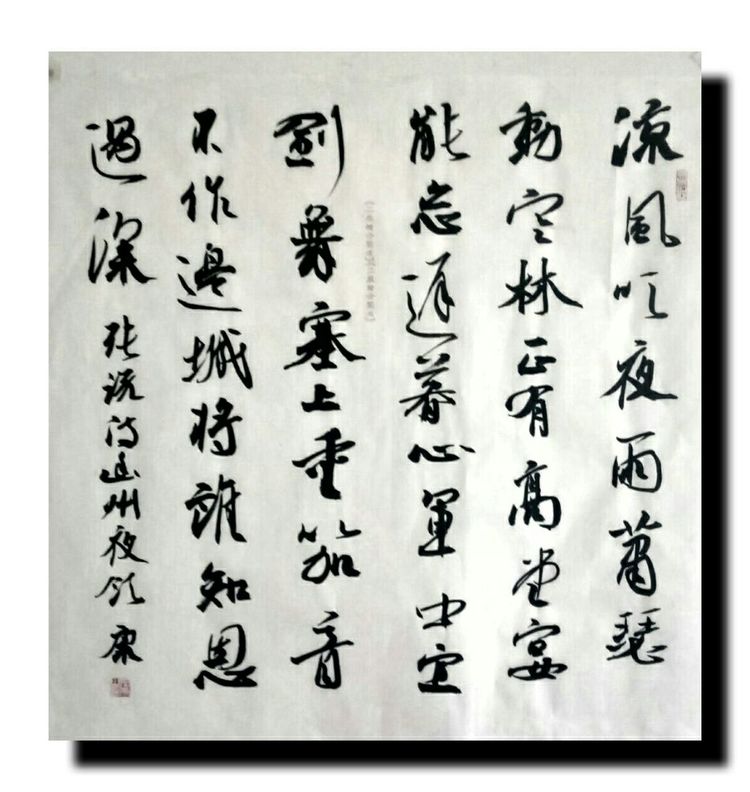 涼風吹夜雨蕭瑟
動寒林正有高堂宴
能忘遲暮心軍中宜
劍舞塞上重笳音
不作邊城將誰知恩
遇深 張說詩幽州夜飲 康